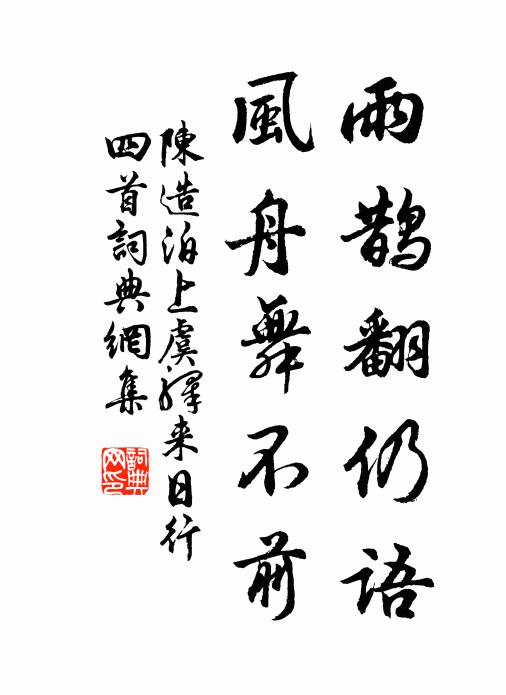 雨鵲翻仍語
風舟舞不前
陳造泊上虞繹来日行
四首詞典網集
詞典网印